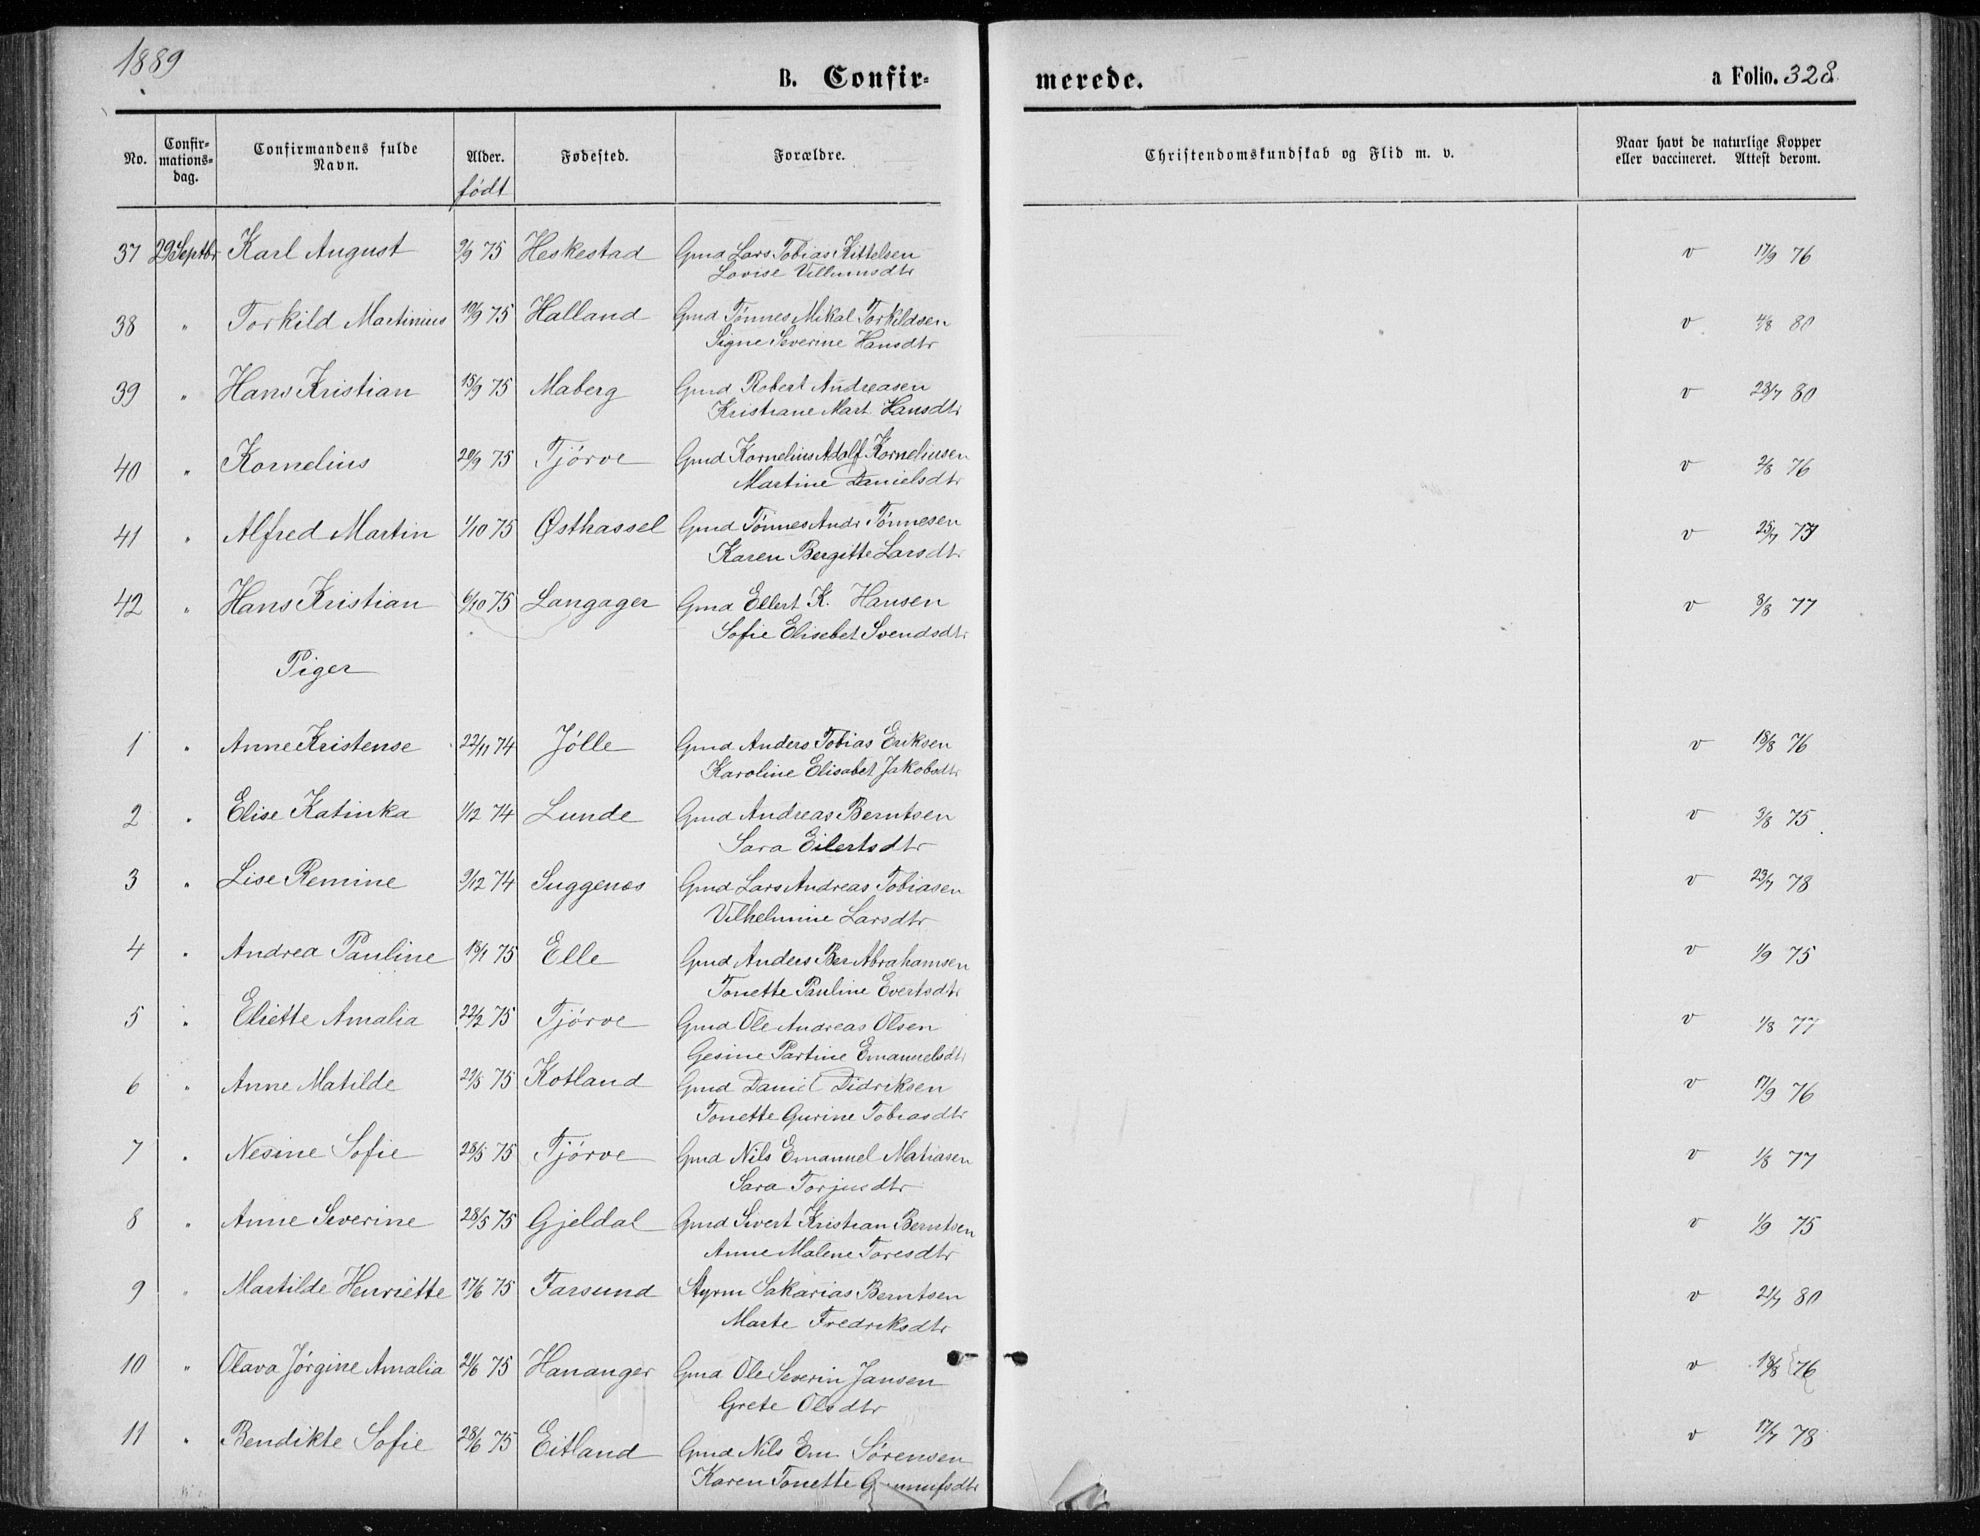 1889
B. Confir=
merede.
a Folio. 328
No.
Confir-
mations-
dag.
Confirmandens fulde
Navn.
Alder.
født
Fødested.
Forældre.
Christendomskundskab og Flid m. v.
Naar havt de naturlige Kopper
eller vaccineret. Attest derom.
37 29 Septbr Karl August 9/9 75 Heskestad Gmd Lars Tobias Kittelsen v 17/9 76
Lovise Villumsdtr
38 " Torkild Martinius 10/9 75 Halland Gmd Tønnes Mikal Torkildsen v 4/8 80
Signe Severine Hansdtr
39 " Hans Kristian 15/9 75 Maberg Gmd Robert Andreasen v 23/7 80
Kristiane Mart. Hansdtr
40 " Kornelius 20/9 75 Tjörve Gmd Kornelius Adolf Korneliusen v 2/8 76
Martine Danielsdtr
41 " Alfred Martin 1/10 75 Østhassel Gmd Tönnes Andr Tönnesen v 25/7 77
Karen Bergitte Larsdtr
42 " Hans Kristian 6/10 75 Langager Gmd Ellert K. Hansen v 8/8 77
Sofie Elisebet Svendsdtr
Piger
1 " Anne Kristense 22/11 74 Jölle Gmd Anders Tobias Eriksen v 18/8 76
Karoline Elisabet Jakobsdtr
2 " Elise Katinka 1/12 74 Lunde Gmd Andreas Berntsen v 3/8 75
Sara Eilertsdtr
3 " Lise Remine 9/12 74 Suggenes Gmd Lars Andreas Tobiasen v 23/7 78
Vilhelmine Larsdtr
4 " Andrea Pauline 18/1 75 Elle Gmd Anders Ber Abrahamsen v 1/9 75
Tonette Pauline Evertsdtr
5 " Eliette Amalia 22/2 75 Tjörve Gmd Ole Andreas Olsen v 1/8 77
Gesine Partine Emanuelsdtr
6 " Anne Matilde 21/5 75 Kotland Gmd Daniel Didriksen v 17/9 76
Tonette Gurine Tobiasdtr
7 " Nesine Sofie 28/5 75 Tjörve Gmd Nils Emanuel Matiasen v 1/8 77
Sara Torjusdtr
8 " Anne Severine 28/5 75 Gjeldal Gmd Sivert Kristian Berntsen v 1/9 75
Anne Malene Toresdtr
9 " Martilde Henriette 17/6 75 Farsund Styrm Sakarias Berntsen v 21/7 80
Marte Fredriksdtr
10 " Olava Jörgine Amalia 21/6 75 Hananger Gmd Ole Severin Jansen v 18/8 76
Grete Olsdtr
11 " Bendikte Sofie 28/6 75 Eitland Gmd Nils Em Sörensen v 17/7 78
Karen Tonette